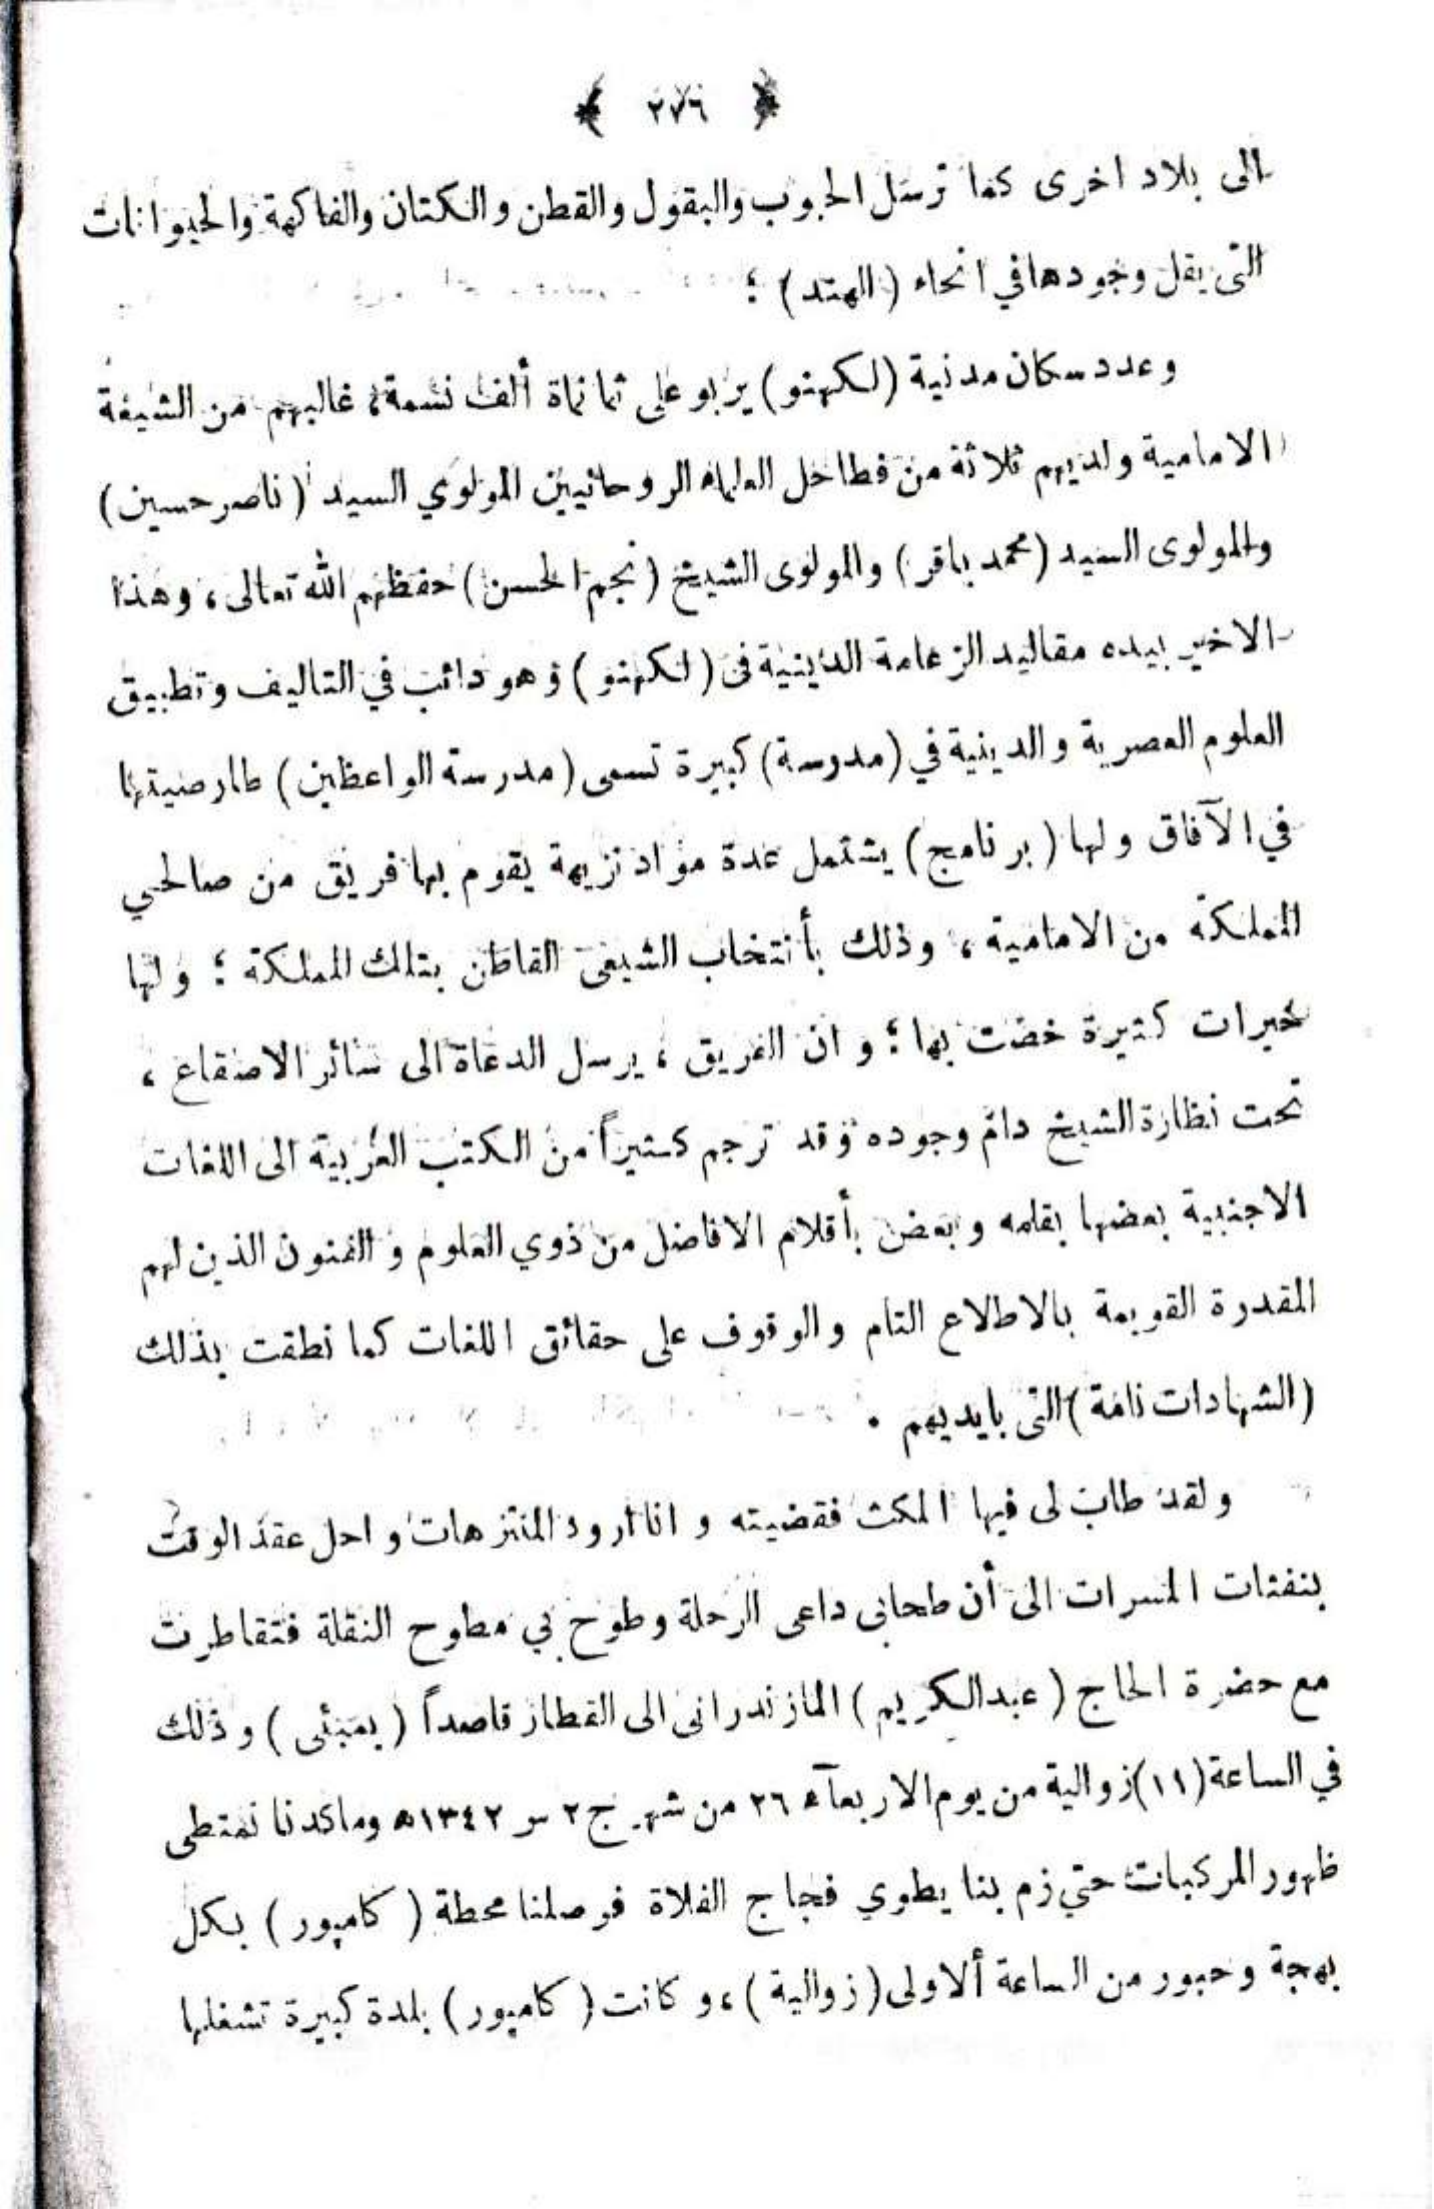 ﴿ ٢٧٦ ﴾
الى بلاد اخرى كما ترسل الحبوب والبقول والقطن والكتان والفاكهة والحيوانات
التى يقل وجودها في انحاء (الهند) ؛
وعدد سكان مدنية (لكهنو) يربو على ثمانمأة ألف نسمة ، غالبهم من الشيعة
الامامية ولديهم ثلاثة من فطاحل العلماء الروحانيين المولوي السيد (ناصر حسين)
والمولوى السيد (محمد باقر) والمولوى الشيخ (نجم الحسن) حفظهم الله تعالى ، وهذا
الاخير بيده مقاليد الزعامة الدينية فى (لكهنو) وهو دائب في التاليف وتطبيق
العلوم العصرية والدينية في (مدرسة) كبيرة تسمى (مدرسة الواعظين) طار صيتها
في الآفاق ولها (برنامج) يشتمل عدة مواد نزيهة يقوم بها فريق من صالحي
المملكة من الامامية ، وذلك بأنتخاب الشيعى القاطن بتلك المملكة ؛ ولها
خيرات كثيرة خصت بها ؛ وان الفريق ، يرسل الدعاة الى سائر الاصقاع ،
تحت نظارة الشيخ دام وجوده وقد ترجم كثيراً من الكتب العربية الى اللغات
الاجنبية بعضها بقلمه وبعض بأقلام الافاضل من ذوي العلوم والفنون الذين لهم
المقدرة القويمة بالاطلاع التام والوقوف على حقائق اللغات كما نطقت بذلك
(الشهادات نامة) التى بايديهم .
ولقد طاب لى فيها المكث فقضيته وانا ارود المنتزهات واحل عقد الوقت
بنفثات المسرات الى أن طحابى داعى الرحلة وطوح بي مطوح النقلة فتقاطرت
مع حضرة الحاج (عبدالكريم) المازندرانى الى القطار قاصداً (بمبئى) وذلك
في الساعة (١١) زوالية من يوم الاربعآء ٢٦ من شهر ج٢ سـ ١٣٤٢ه وماكدنا نمتطى
ظهور المركبات حتي زم بنا يطوي فجاج الفلاة فوصلنا محطة (كامپور) بكل
بهجة وحبور من الساعة ألاولى (زوالية) ، وكانت (كامپور) بلدة كبيرة تشغلها